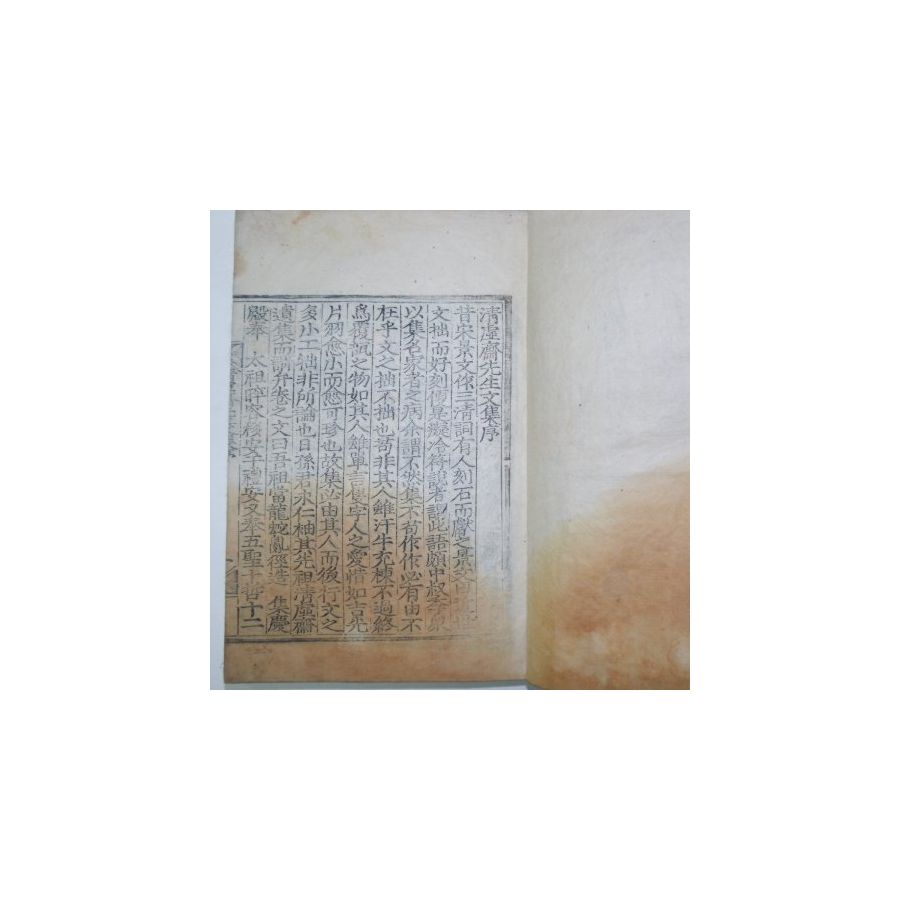 清虛齋先生文集序
昔宋景文作三淸詞有人刻石而獻之景文曰
文拙而好刻石傳是癡冷符說者謂此語頗中
以集名家者之病余謂不然集不苟作作必有由不
在乎文之拙不拙也苟非其人雖汗牛充棟不過終
爲覆瓿之物如其人雖單言隻字人之愛惜如吉光
片羽愈小而愈可珍也故集必由其人而後行文之
多小工拙非所論也日孫君永仁袖其先祖淸虛齋
遺集而謂弁卷之文曰吾祖當龍蛇亂徑造 集慶
殿奉 太祖晬容後安于禮安又奉五聖十哲十二